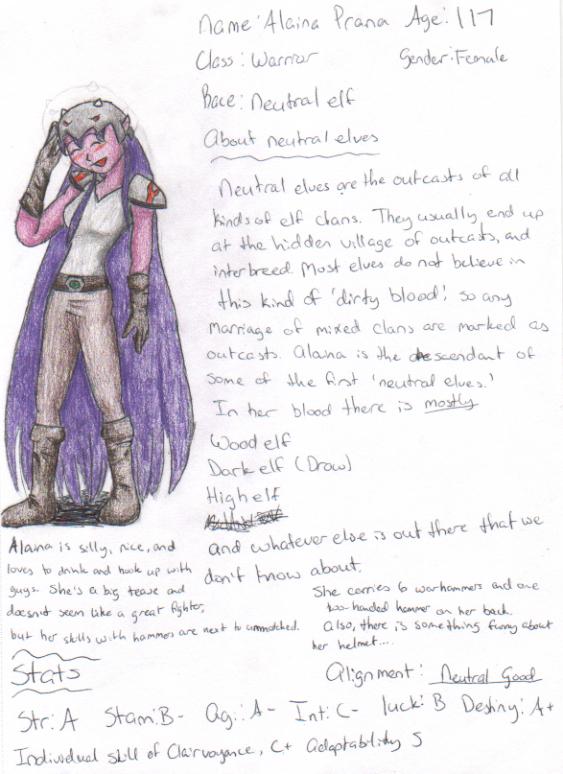 Name: Alaina Prana Age: 117
Class: Warrior Gender: Female
Race: Neutral elf
About neutral elves
Neutral elves are the outcasts of all
kinds of elf clans. They usually end up
at the hidden village of outcasts, and
interbreed. Most elves do not believe in
this kind of 'dirty blood', so any
marriage of mixed clans are marked as
outcasts. Alaina is the descendant of
some of the first 'neutral elves.'
In her blood there is mostly
Wood elf
Dark elf (Drow)
High elf
and whatever else is out there that we
don't know about.
Alaina is silly, nice, and
loves to drink and hook up with
guys. She's a big tease and
doesn't seem like a great fighter,
but her skills with hammers are next to unmatched.
She carries 6 warhammers and one
two-handed hammer on her back.
Also, there is something funny about
her helmet....
Stats
Alignment: Neutral Good
Str: A Stam: B- Ag: A- Int: C- luck: B Destiny: A+
Individual skill of Clairvoyance, C+ Adaptability S